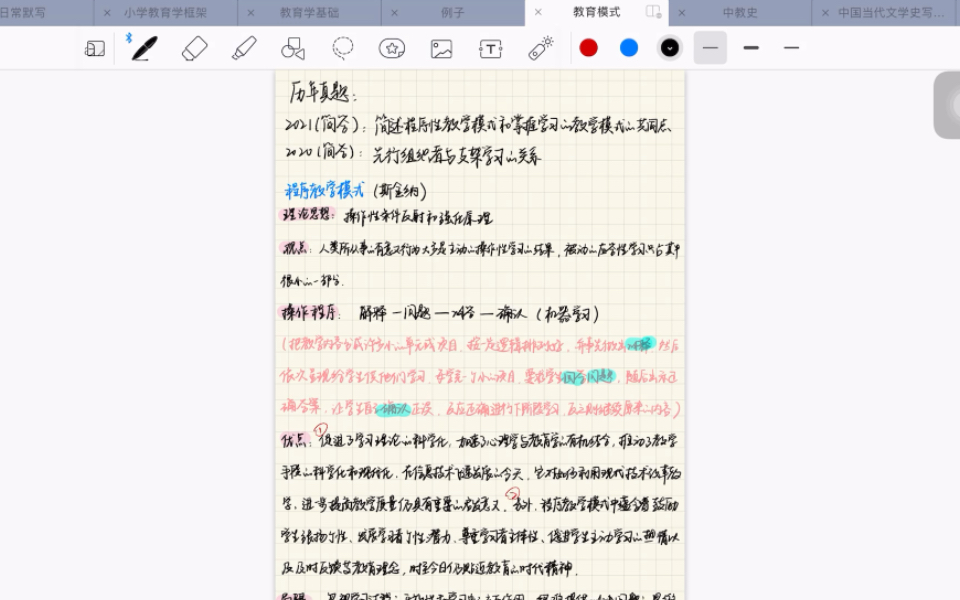 日常默写
小学教育学框架
教育学基础
例子
教育模式
中教史
中国当代文学史写…
T
历年真题：
2021(简答)：简述程序性教学模式和掌握学习的教学模式的共同点
2020(简答)：先行组织者与支架学习的关系
程序教学模式（斯金纳）
理论思想：操作性条件反射和强化原理
观点：人类所从事的有意义行为大多是主动的操作性学习的结果，被动的应答性学习只占其中
很小的一部分.
操作程序： 解释—问题—解答—确认（机器学习）
（把教学内容分成许多小单元或项目，按一定逻辑排列好，并事先做出解释，然后
依次呈现给学生供他们学习，每学完一个小项目，要求学生回答问题，随后出示正
确答案，让学生自己确认正误，反应正确进行下阶段学习，反之则继续原来的内容）
优点：①促进了学习理论的科学化，加速了心理学与教育学的有机结合，推动了教学
手段的科学化和现代化，在信息技术飞速发展的今天，它对如何利用现代技术改革教
学，进一步提高教学质量仍具有重要的启发意义. ②另外，程序教学模式中蕴含着鼓励
学生张扬个性、发展学习者个性潜力、尊重学习者主体性、促进学生主动学习的热情以
及及时反馈等教育理念，时至今日仍贴近教育的时代精神.